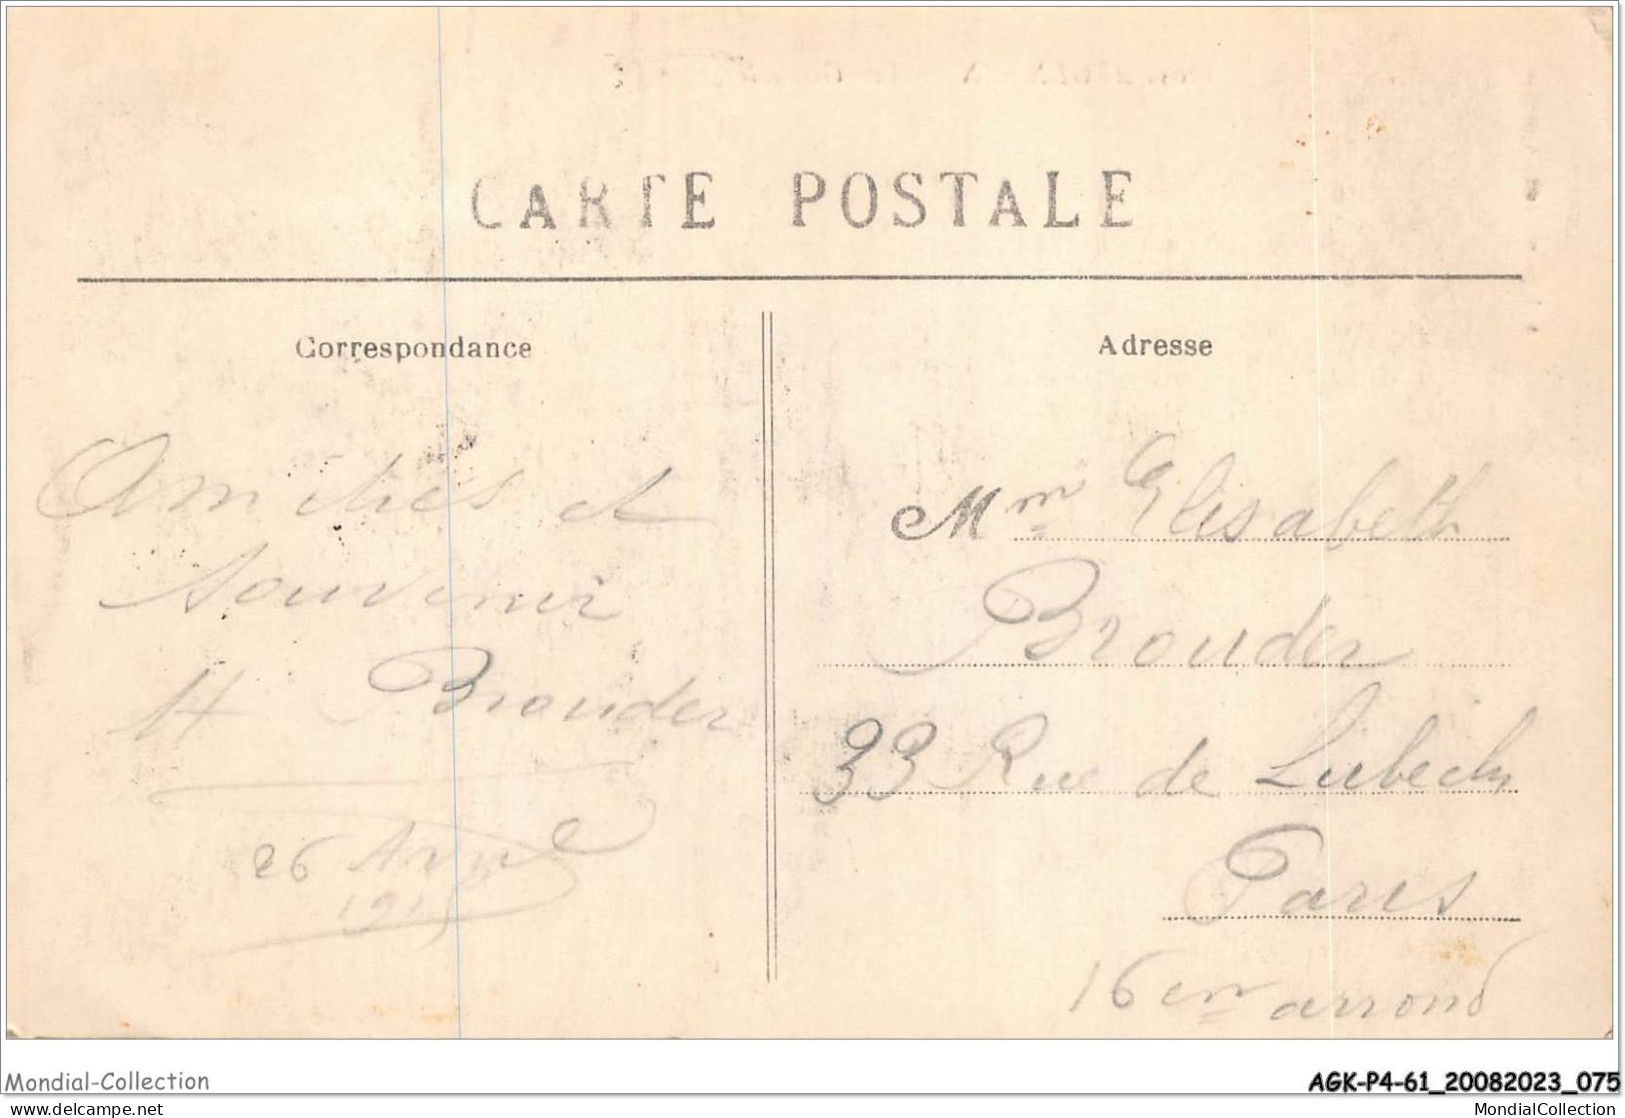 CARTE POSTALE
Correspondance
Amitiés et
souvenir
H Brouder
26 Avril
1915
Adresse
Mm Elisabeth
Brouder
33 Rue de Lubeck
Paris
16 em arrond
Mondial-Collection
AGK-P4-61_20082023_075
delcampe.net
MondialCollection